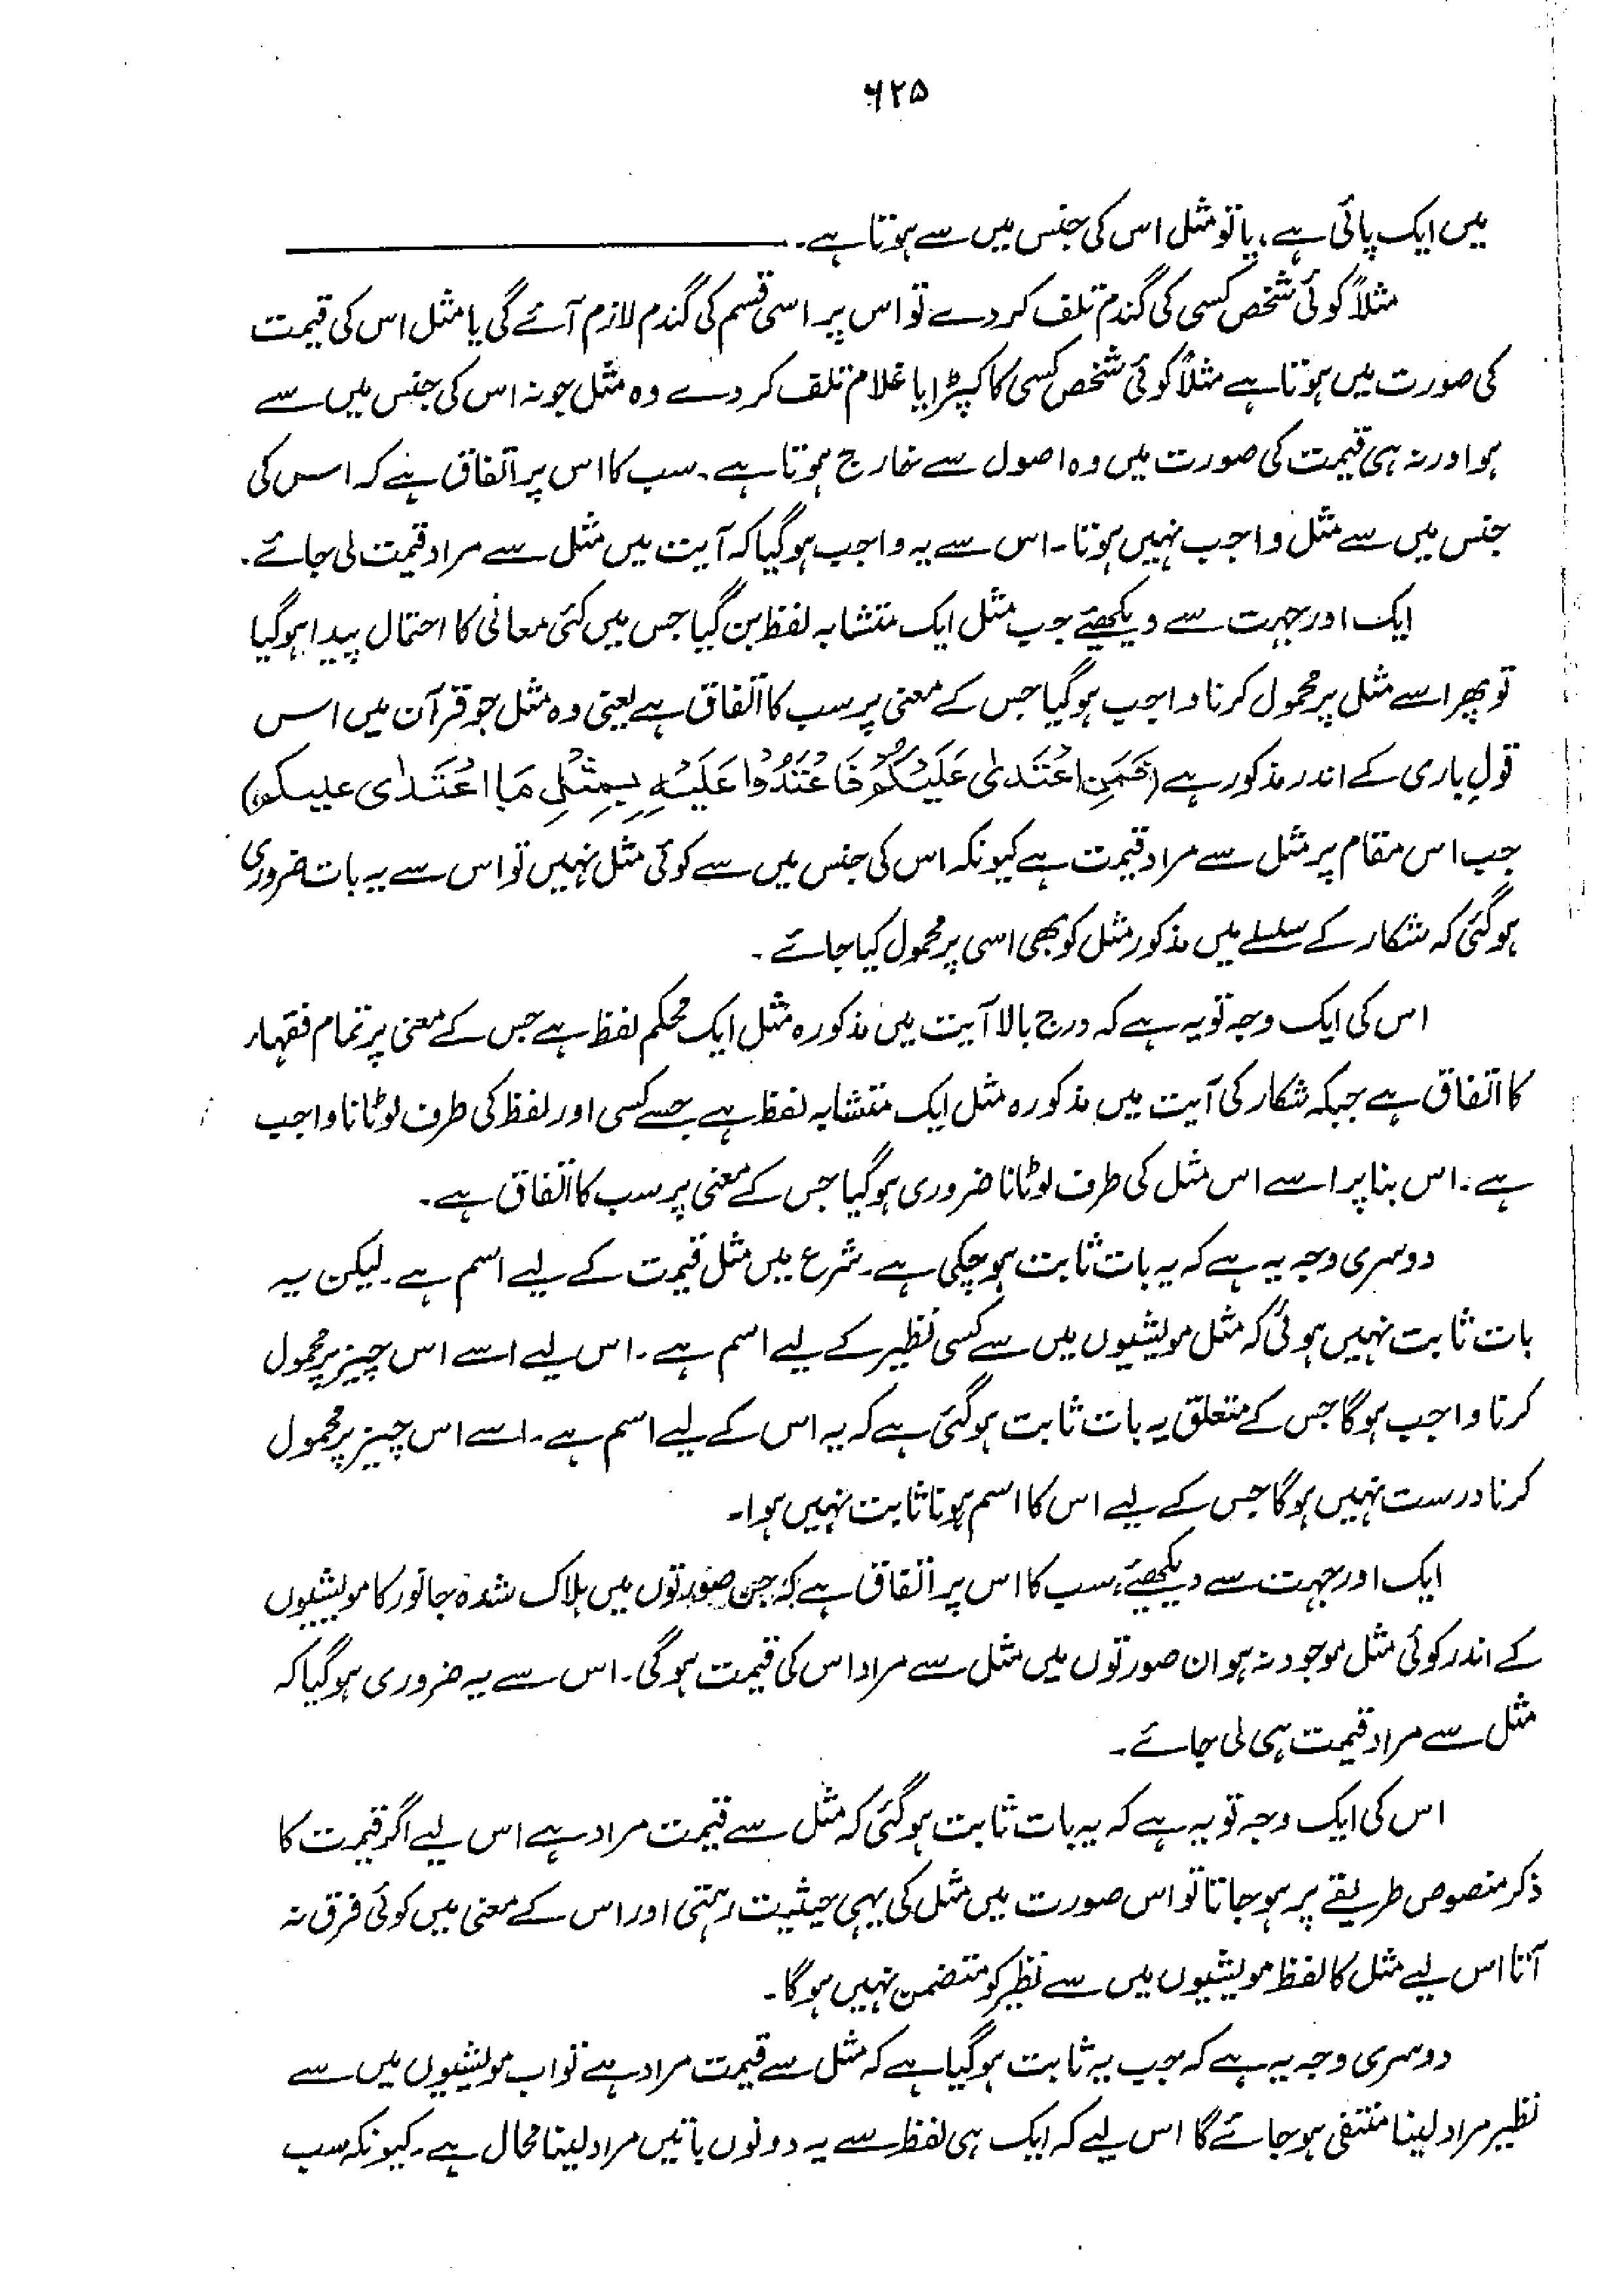 ۶۲۵
میں ایک پائی ہے، یا تو مثل اس کی جنس میں سے ہوتا ہے۔
مثلاً کوئی شخص کسی کی گندم تلف کر دے تو اس پر اسی قسم کی گندم لازم آئے گی یا مثل اس کی قیمت
کی صورت میں ہوتا ہے مثلاً کوئی شخص کسی کا کپڑا یا غلام تلف کر دے وہ مثل جو نہ اس کی جنس میں سے
ہو اور نہ ہی قیمت کی صورت میں وہ اصول سے خارج ہوتا ہے۔ سب کا اس پر اتفاق ہے کہ اس کی
جنس میں سے مثل واجب نہیں ہوتا۔ اس سے یہ واجب ہو گیا کہ آیت میں مثل سے مراد قیمت لی جائے۔
ایک اور جہت سے دیکھئے جب مثل ایک متشابہ لفظ بن گیا جس میں کئی معانی کا احتمال پیدا ہو گیا
تو پھر اسے مثل پر محمول کرنا واجب ہو گیا جس کے معنی پر سب کا اتفاق ہے یعنی وہ مثل جو قرآن میں اس
قولِ باری کے اندر مذکور ہے (فَمَنِ اعْتَدٰی عَلَیْکُمْ فَاعْتَدُوْا عَلَیْہِ بِمِثْلِ مَا اعْتَدٰی علیکم)
جب اس مقام پر مثل سے مراد قیمت ہے کیونکہ اس کی جنس میں سے کوئی مثل نہیں تو اس سے یہ بات ضروری
ہو گئی کہ شکار کے سلسلے میں مذکور مثل کو بھی اسی پر محمول کیا جائے۔
اس کی ایک وجہ تو یہ ہے کہ درج بالا آیت میں مذکورہ مثل ایک محکم لفظ ہے جس کے معنی پر تمام فقہاء
کا اتفاق ہے جبکہ شکار کی آیت میں مذکورہ مثل ایک متشابہ لفظ ہے جسے کسی اور لفظ کی طرف لوٹانا واجب
ہے۔ اس بنا پر اسے اس مثل کی طرف لوٹانا ضروری ہو گیا جس کے معنی پر سب کا اتفاق ہے۔
دوسری وجہ یہ ہے کہ یہ بات ثابت ہو چکی ہے۔ شرع میں مثل قیمت کے لیے اسم ہے۔ لیکن یہ
بات ثابت نہیں ہوئی کہ مثل مویشیوں میں سے کسی نظیر کے لیے اسم ہے۔ اس لیے اسے اس چیز پر محمول
کرنا واجب ہوگا جس کے متعلق یہ بات ثابت ہو گئی ہے کہ یہ اس کے لیے اسم ہے۔ اسے اس چیز پر محمول
کرنا درست نہیں ہوگا جس کے لیے اس کا اسم ہونا ثابت نہیں ہوا۔
ایک اور جہت سے دیکھئے، سب کا اس پر اتفاق ہے کہ جن صورتوں میں ہلاک شدہ جانور کا مویشیوں
کے اندر کوئی مثل موجود نہ ہو ان صورتوں میں مثل سے مراد اس کی قیمت ہوگی۔ اس سے یہ ضروری ہو گیا کہ
مثل سے مراد قیمت ہی لی جائے۔
اس کی ایک وجہ تو یہ ہے کہ یہ بات ثابت ہو گئی کہ مثل سے قیمت مراد ہے اس لیے اگر قیمت کا
ذکر منصوص طریقے پر ہو جاتا تو اس صورت میں مثل کی یہی حیثیت رہتی اور اس کے معنی میں کوئی فرق نہ
آتا اس لیے مثل کا لفظ مویشیوں میں سے نظیر کو متضمن نہیں ہوگا۔
دوسری وجہ یہ ہے کہ جب یہ ثابت ہو گیا ہے کہ مثل سے قیمت مراد ہے تو اب مویشیوں میں سے
نظیر مراد لینا منتفی ہو جائے گا اس لیے کہ ایک ہی لفظ سے یہ دونوں باتیں مراد لینا محال ہے۔ کیونکہ سب